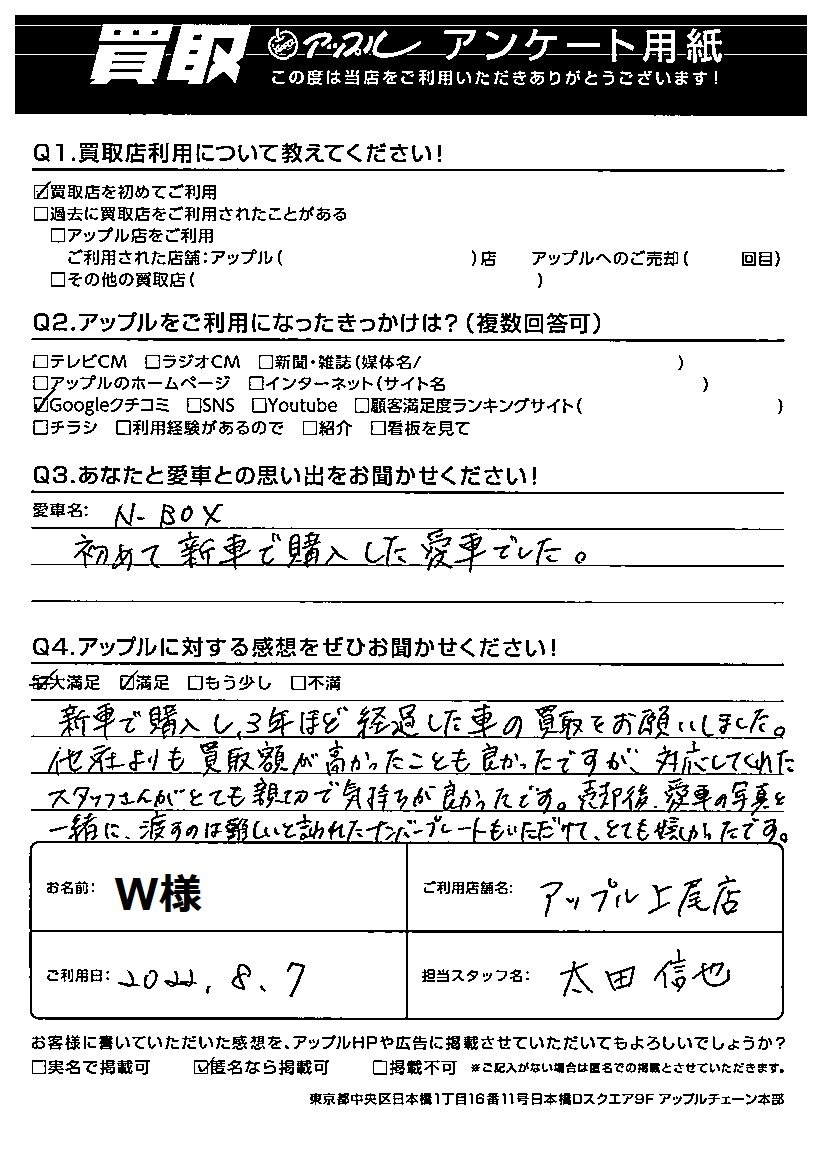 買取 アップル アンケート用紙
この度は当店をご利用いただきありがとうございます!
Q1.買取店利用について教えてください!
☑買取店を初めてご利用
□過去に買取店をご利用されたことがある
□アップル店をご利用
ご利用された店舗:アップル( )店 アップルへのご売却( 回目)
□その他の買取店( )
Q2.アップルをご利用になったきっかけは?(複数回答可)
□テレビCM □ラジオCM □新聞・雑誌(媒体名/ )
□アップルのホームページ □インターネット(サイト名 )
☑Googleクチコミ □SNS □Youtube □顧客満足度ランキングサイト( )
□チラシ □利用経験があるので □紹介 □看板を見て
Q3.あなたと愛車との思い出をお聞かせください!
愛車名: N-BOX
初めて新車で購入した愛車でした。
Q4.アップルに対する感想をぜひお聞かせください!
☑大満足 ☑満足 □もう少し □不満
新車で購入し、3年ほど経過した車の買取をお願いしました。
他社よりも買取額が高かったことも良かったですが、対応してくれた
スタッフさんがとても親切で気持ちが良かったです。売却後、愛車の写真と
一緒に、渡すのは難しいと言われたナンバープレートもいただけて、とても嬉しかったです。
お名前: W様
ご利用店舗名: アップル上尾店
ご利用日: 2022.8.7
担当スタッフ名: 太田 信也
お客様に書いていただいた感想を、アップルHPや広告に掲載させていただいてもよろしいでしょうか?
□実名で掲載可 ☑匿名なら掲載可 □掲載不可 ※ご記入がない場合は匿名での掲載とさせていただきます。
東京都中央区日本橋1丁目16番11号日本橋ロスクエア9F アップルチェーン本部